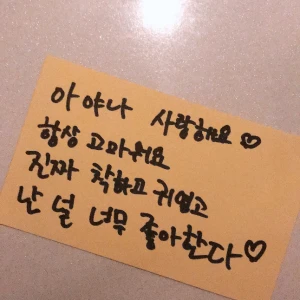 아야나 사랑해요♡
항상 고마워요
진짜 착하고 귀엽고
난 널 너무 좋아한다♡